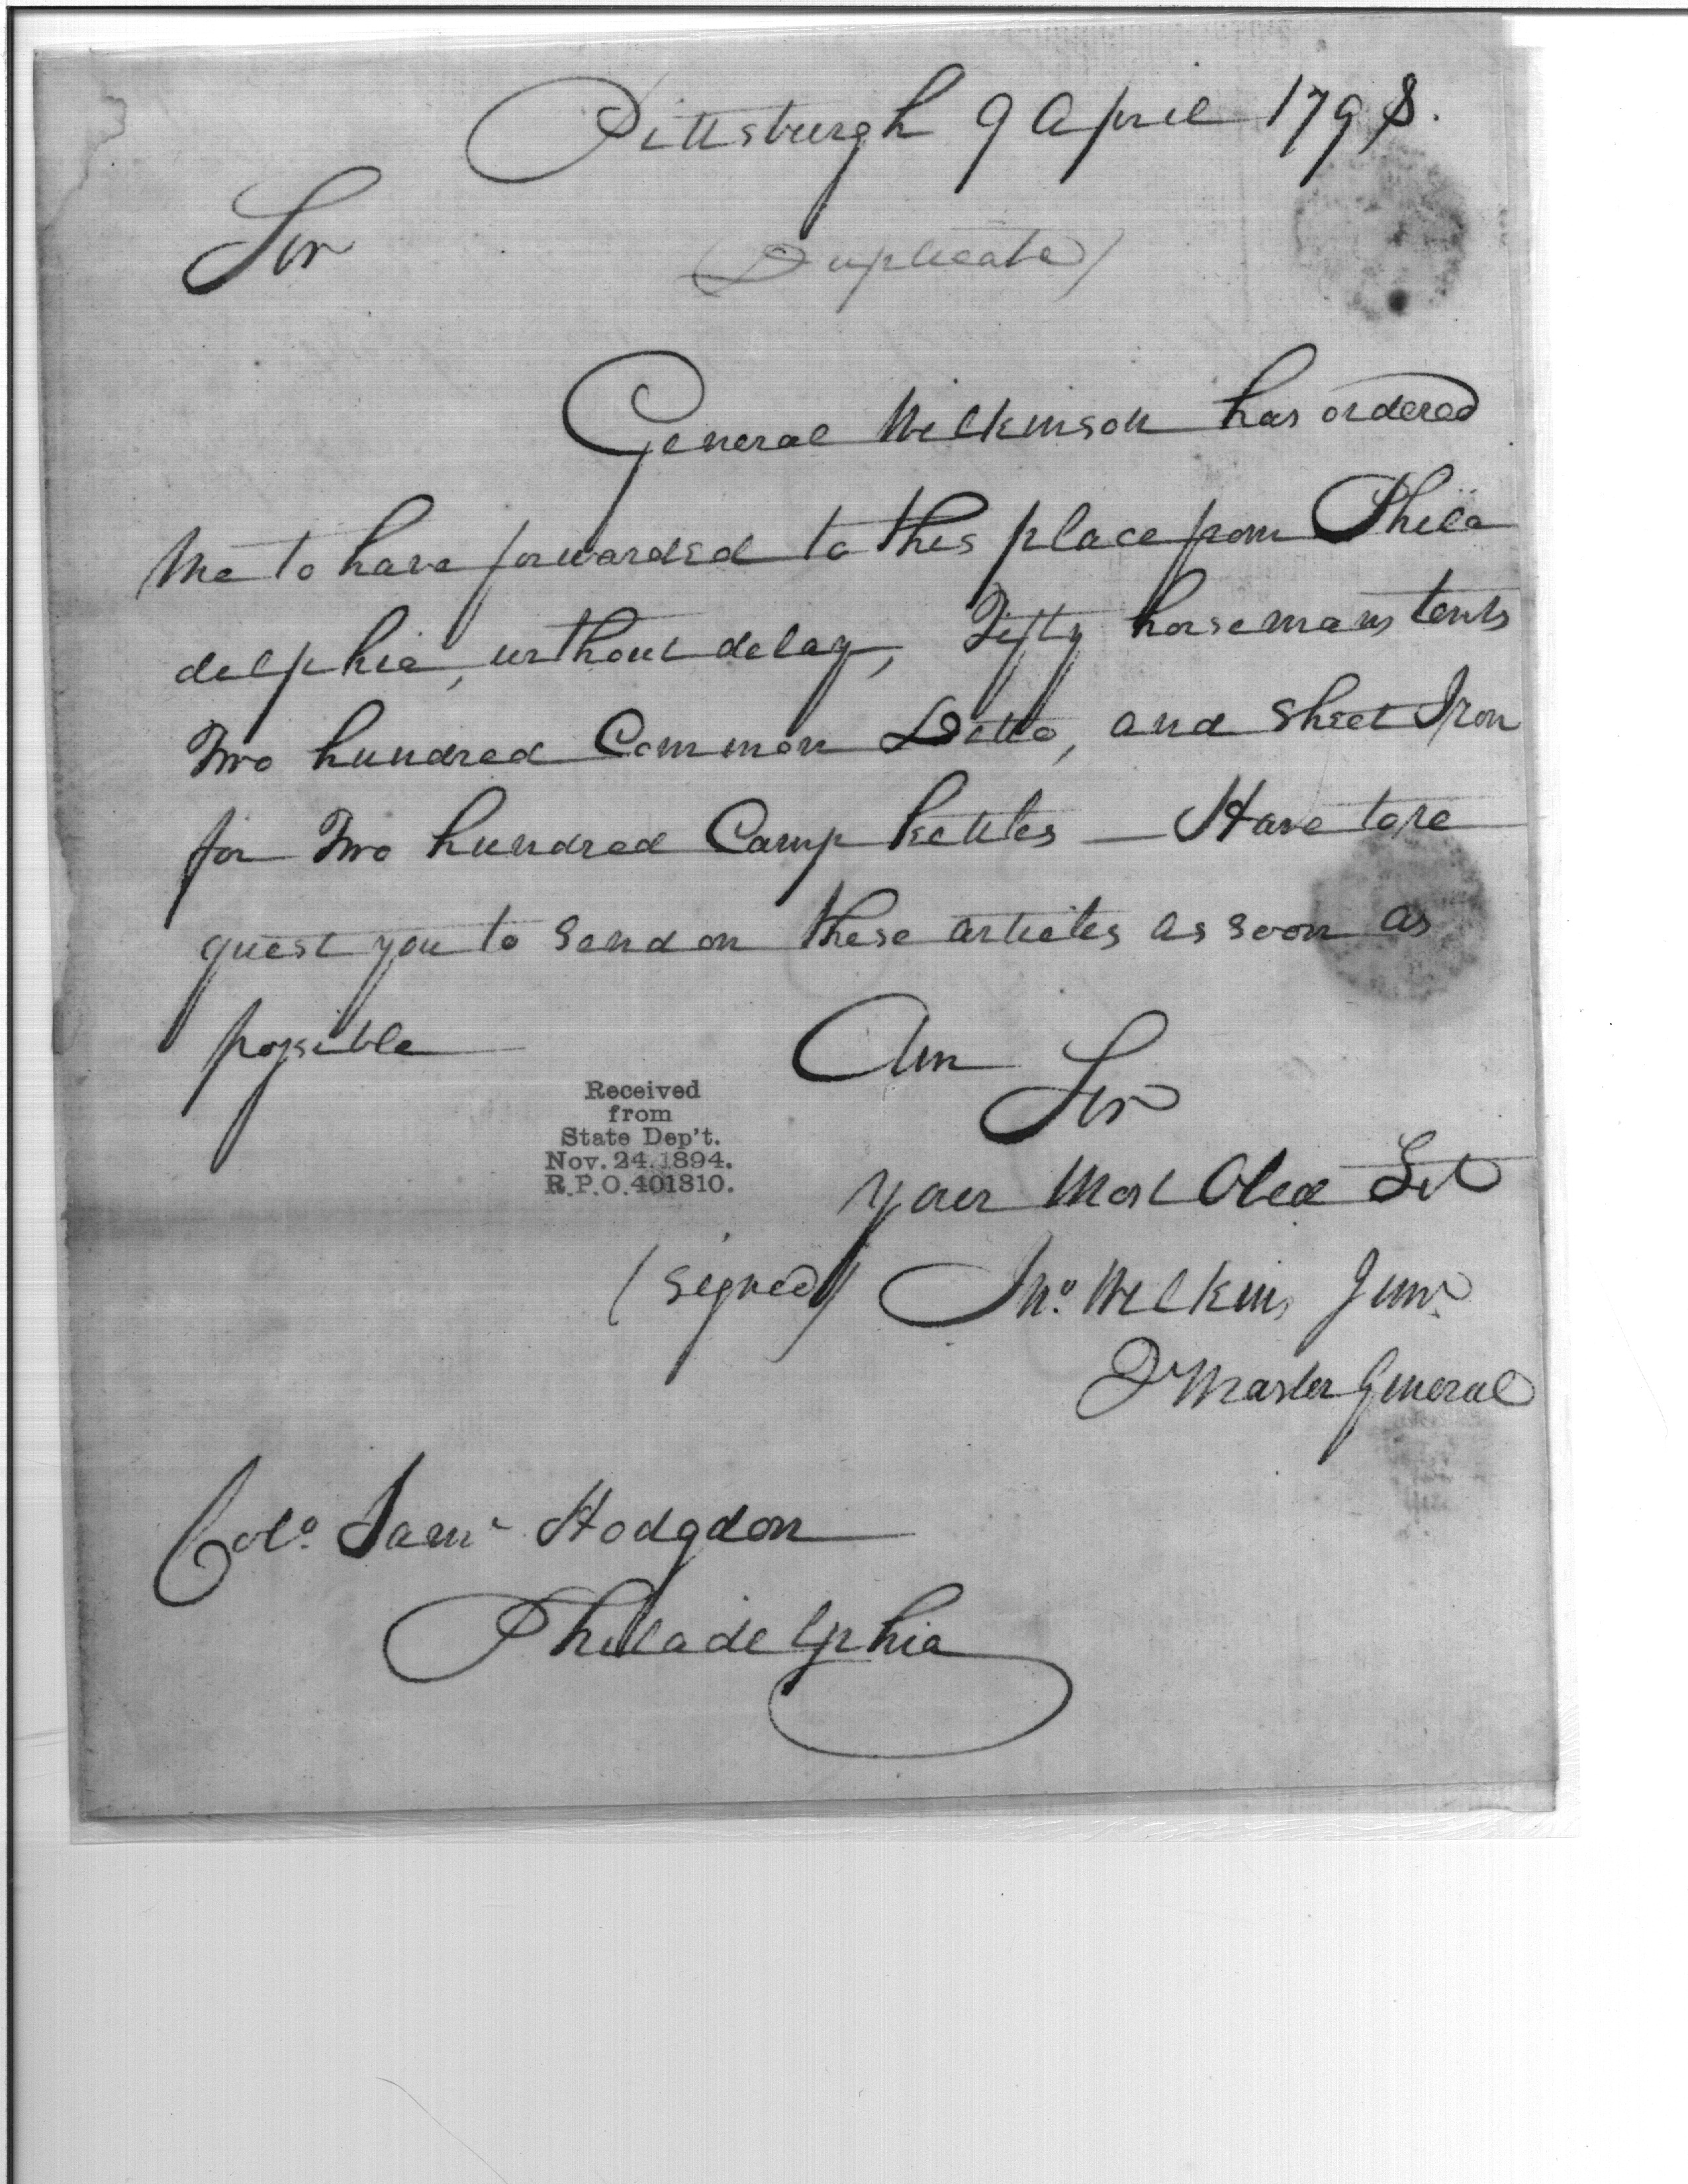 Pittsburgh 9 April 1798.
Sir
(Duplicate)
General Wilkinson has ordered
me to have forwarded to this place from Phila
delphia, without delay, Fifty horsemans tents
Two hundred Common Ditto, and sheet Iron
for Two hundred Camp kettles — Have to re
quest you to send on these articles as soon as
possible
Am
Sir
Received
from
State Dep't.
Nov. 24. 1894.
R.P.O. 401810.
your Most Obed Svt
(signed) Jno. Wilkins Junr.
Qr Master General
Colo. Saml Hodgdon
Philadelphia